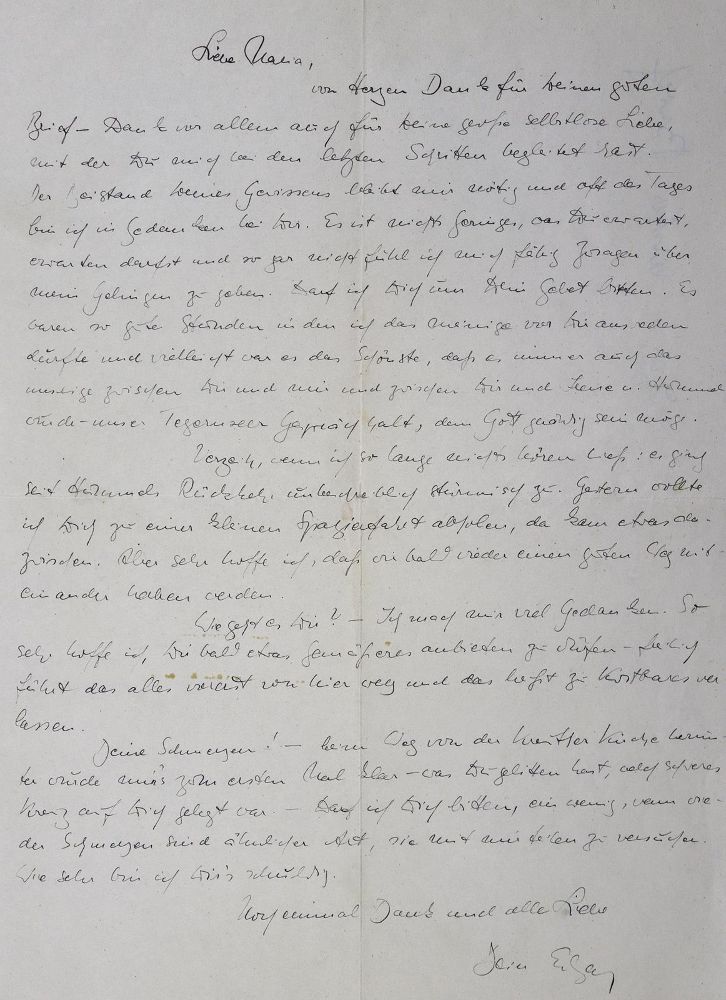 Liebe Maria,
von Herzen Dank für Deinen guten
Brief – Dank vor allem auch für Deine große selbstlose Liebe,
mit der Du mich bei den letzten Schritten begleitet hast.
Der Beistand Deines Gewissens bleibt mir nötig und oft des Tages
bin ich in Gedanken bei Dir. Es ist nichts Geringes, was Du erwartest,
erwarten darfst und so gar nicht fühl ich mich fähig Zusagen über
mein Gelingen zu geben. Darf ich Dich um Dein Gebet bitten. Es
waren so gute Stunden in den ich das meinige vor Dir ausreden
durfte und vielleicht war es das Schönste, daß es immer auch das
unsrige zwischen Dir und mir und zwischen Dir und u.
wurde – unser Tegernseer Gespräch halt, dem Gott gnädig sein möge.
Verzeih, wenn ich so lange nichts hören ließ: es ging
seit Rückkehr unbeschreiblich stürmisch zu. Gestern wollte
ich Dich zu einer kleinen Spazierfahrt abholen, da kam etwas da-
zwischen. Aber sehr hoffe ich, daß wir bald wieder einen guten Weg mit-
einander haben werden.
Wie geht es Dir? – Ich mach mir viel Gedanken. So
sehr hoffe ich, Dir bald etwas Gemäßeres anbieten zu dürfen – freilich
führt das alles von hier weg und das heißt zu Kostbares ver
lassen.
Deine Schmerzen! – beim Weg von der Kreuther Kirche herun-
ter wurde mir's zum ersten Mal klar – was Du gelitten hast, welch schweres
Kreuz auf Dich gelegt war. – Darf ich Dich bitten, ein wenig, wenn wie-
der Schmerzen sind ähnlicher Art, sie mit mir teilen zu versuchen.
Wie sehr bin ich Dir's schuldig.
Noch einmal Dank und alle Liebe
Dein